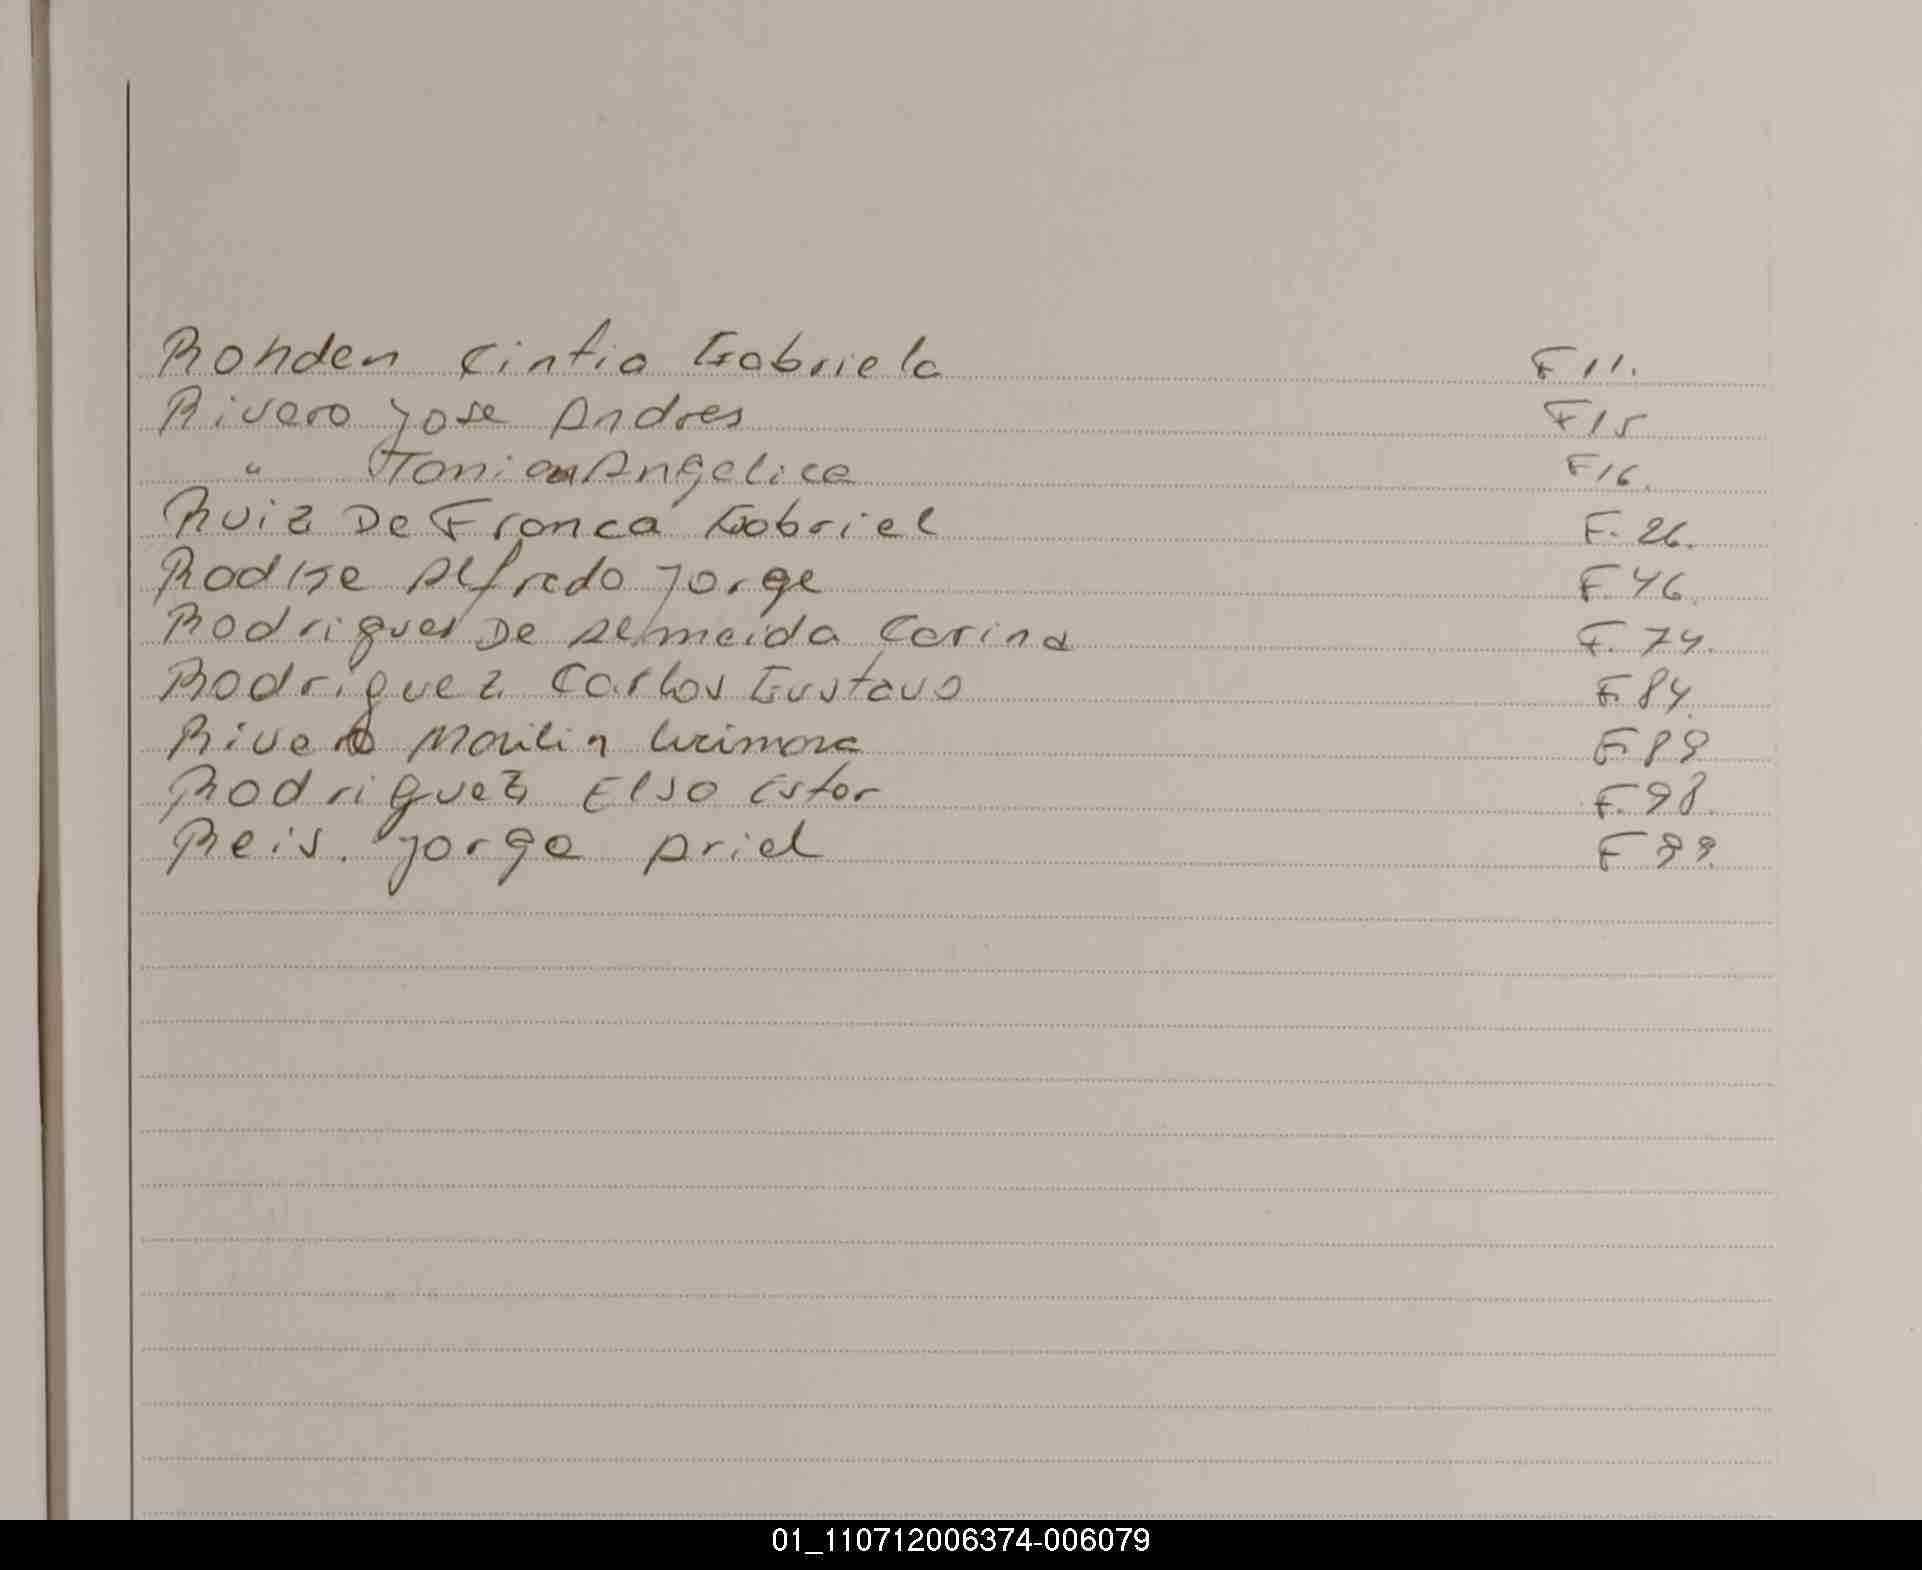 Rohden Cintia Gabriela F 11.
Rivero Jose Andres F 15
" Tania Angelica F 16.
Ruiz De Franca Gabriel F. 26.
Alfredo Jorge F. 46.
Rodrigues De Almeida Carina F. 74.
Rodriguez Carlos Gustavo F. 84.
Rivero F 89
Rodriguez Elso Ester F. 98.
Reis. Jorge Ariel F 99.
01_110712006374-006079